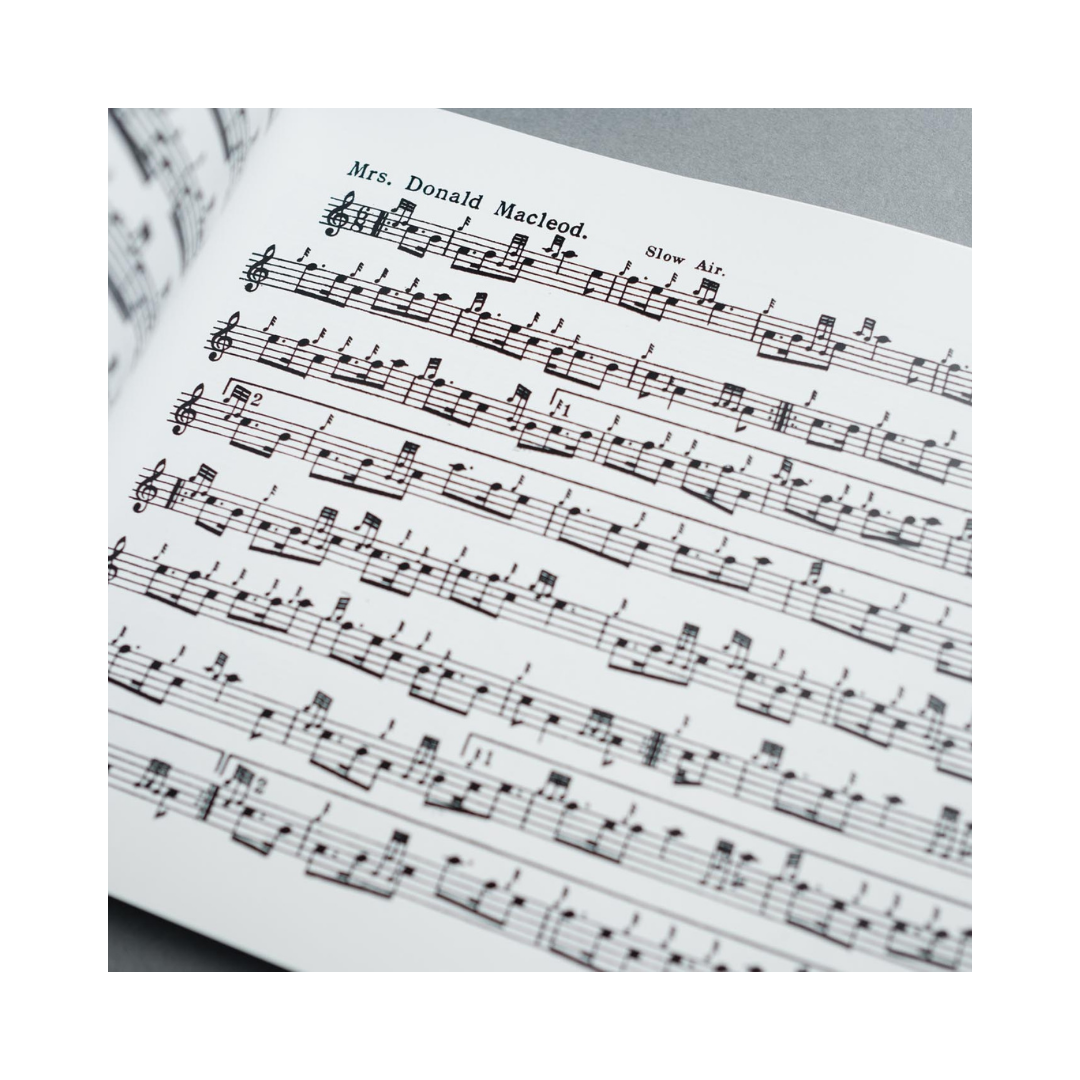 Mrs. Donald Macleod.
Slow Air.
6
8
1
2
1
2